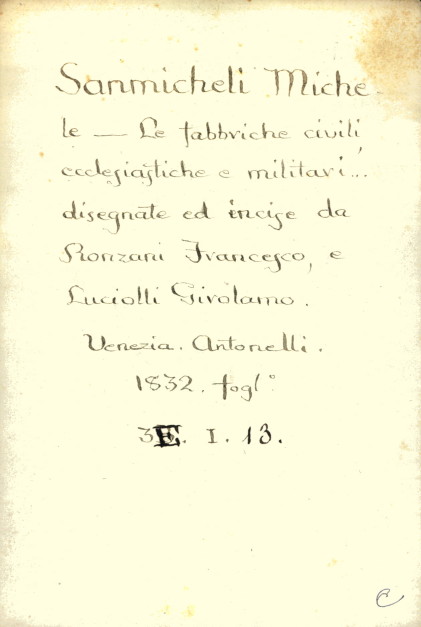 Sanmicheli Miche-
le — Le fabbriche civili,
ecclesiastiche e militari...
disegnate ed incise da
Ronzani Francesco, e
Luciolli Girolamo.
Venezia. Antonelli.
1832. fogl°
E. I. 13.
C